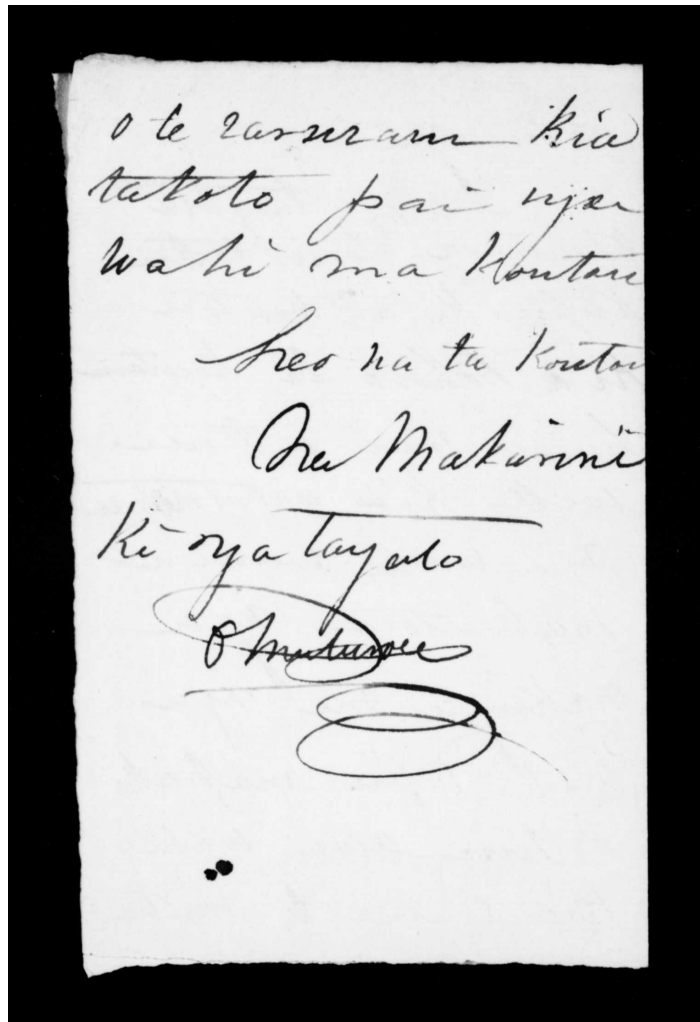 o te raruraru kia
takoto pai nga
wahi ma koutou
Heo na ta koutou
Na Makarini
Ki nga tangata
O Muturoa